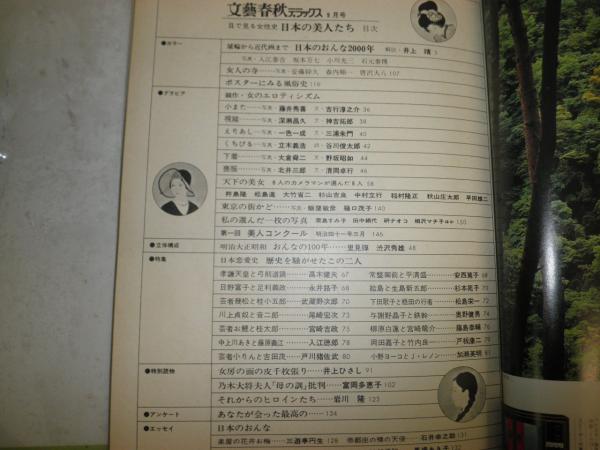 文藝春秋デラックス 9月号
目で見る女性史 日本の美人たち 目次
●カラー
埴輪から近代画まで 日本のおんな2000年 解説・井上 靖 5
写真・入江泰吉 坂本万七 小川光三 石元泰博
女人の寺……写真・安藤 107
ポスターにみる風俗史 116
●グラビア
競作・女のエロティシズム
小また……写真・藤井秀喜 文・吉行淳之介 36
視線……写真・深瀬昌久 文・神吉拓郎 38
えりあし……写真・一色一成 文・三浦朱門 40
くちびる……写真・立木義浩 詩・谷川俊太郎 42
下着……写真・大倉舜二 文・野坂昭如 44
写真・北井三郎 文・清岡卓行 46
天下の美女 8人のカメラマンが選んだ8人 58
秋山庄太郎 早田雄二
大竹省二 杉山吉良 中村立行 稲村隆正
東京の街かど……写真・飯窪敏彦 樋口茂子 140
私の選んだ一枚の写真 田中絹代 研ナオコ
第一回 美人コンクール 明治四十一年三月 145
●立体構成
明治大正昭和 おんなの100年……里見弴 渋沢秀雄 48
●特集
日本恋愛史 歴史を騒がせたこの二人
孝謙天皇と弓削道鏡……高木健夫 67
常盤御前と平清盛……安西篤子 68
日野富子と足利義政……永井路子 68
絵島と生島新五郎……杉本苑子
芸者幾松と桂小五郎……武蔵野次郎 70
下田歌子と穏田の行者……松島栄一
川上貞奴と音二郎……尾崎宏次 73
与謝野晶子と鉄幹……奥野健男 74
芸者お鯉と桂太郎……宮崎吉政 75
柳原白蓮と宮崎龍介……藤島泰輔
中上川あきと藤原義江……入江徳郎 78
岡田嘉子と竹内良一……戸板康二
芸者小りんと吉田茂……戸川猪佐武 80
小野ヨーコとJ・レノン……加瀬英明
●特別読物
女房の面の皮千枚張り……井上ひさし 91
乃木大将夫人「母の訓」批判……富岡多恵子 102
それからのヒロインたち……岩川 隆 123
●アンケート
あなたが会った最高の…… 134
●エッセイ
日本のおんな
楽屋の花お梅……三遊亭円生 128
帝都出の憐の天使……石井幸之助